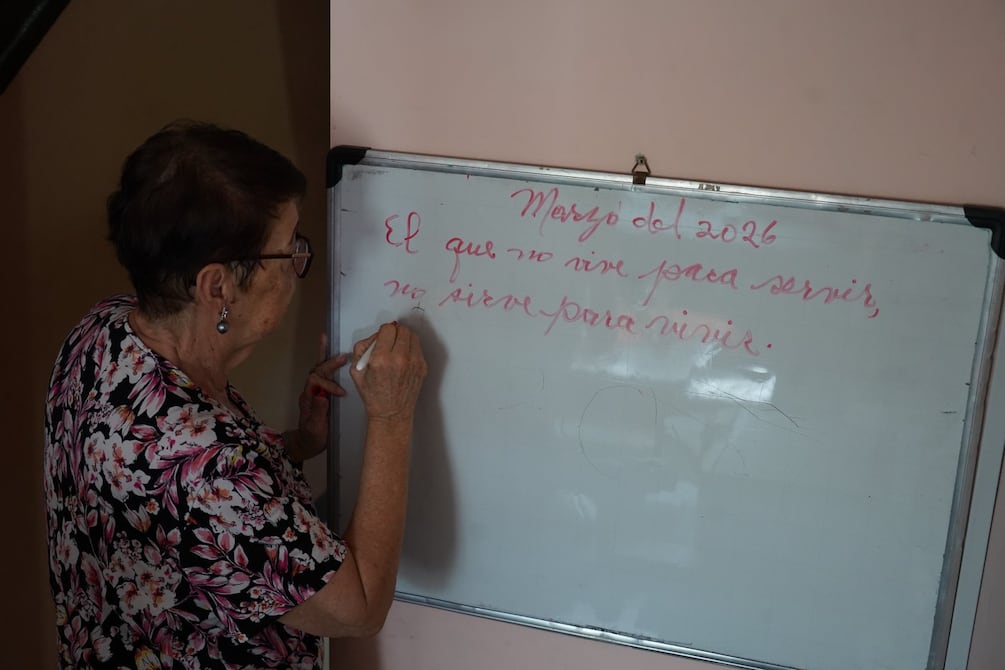 Marzo del 2026
El que no vive para servir,
no sirve para vivir.